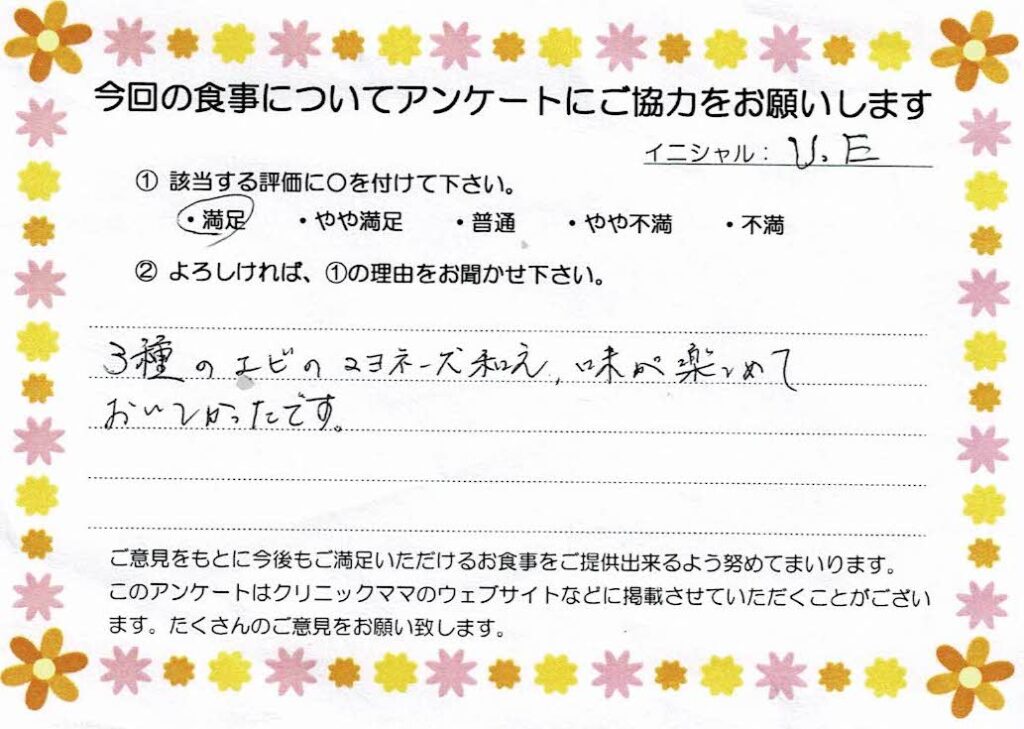 今回の食事についてアンケートにご協力をお願いします
イニシャル： U.E
① 該当する評価に〇を付けて下さい。
・満足 ・やや満足 ・普通 ・やや不満 ・不満
② よろしければ、①の理由をお聞かせ下さい。
3種のエビのマヨネーズ和え、味が楽しめて
おいしかったです。
ご意見をもとに今後もご満足いただけるお食事をご提供出来るよう努めてまいります。
このアンケートはクリニックママのウェブサイトなどに掲載させていただくことがござい
ます。たくさんのご意見をお願い致します。